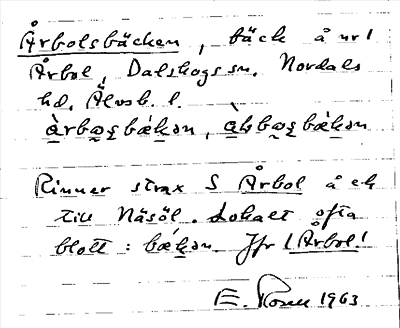 Årbolsbäcken, bäck å nr 1
Årbol, Dalskogs sn. Nordals
hd. Älvsb. l.
Rinner strax S Årbol å ek
till Näsöl. Lokalt ofta
blott: bǽkən. Jfr 1 Årbol!
E. Rosen 1963